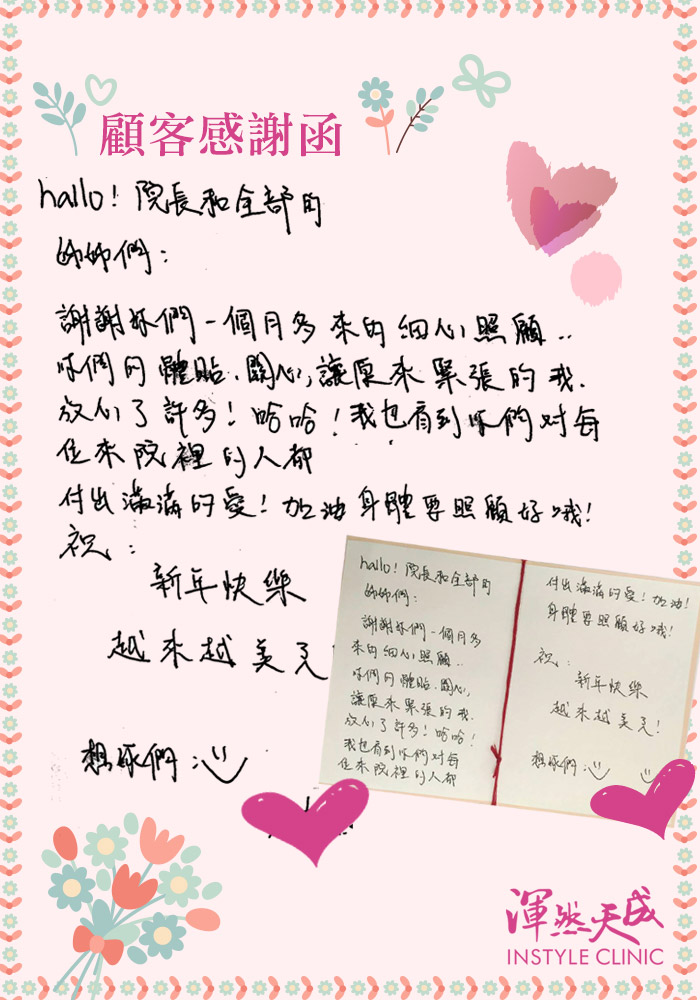 顧客感謝函
hallo! 院長和全部的
姊姊們:
謝謝妳們一個月多來的細心照顧..
妳們的體貼、關心,讓原來緊張的我.
放心了許多!哈哈!我也看到妳們对每
位來院裡的人都
付出滿滿的愛!加油身體要照顧好哦!
祝:
新年快樂
越來越美麗
想妳們:
hallo! 院長和全部的
姊姊們:
謝謝妳們一個月多
來的細心照顧..
妳們的體貼、關心,
讓原來緊張的我.
放心了許多!哈哈!
我也看到妳們对每
位來院裡的人都
付出滿滿的愛!加油!
身體要照顧好哦!
祝:
新年快樂
越來越美麗!
想妳們:
渾然天成
INSTYLE CLINIC